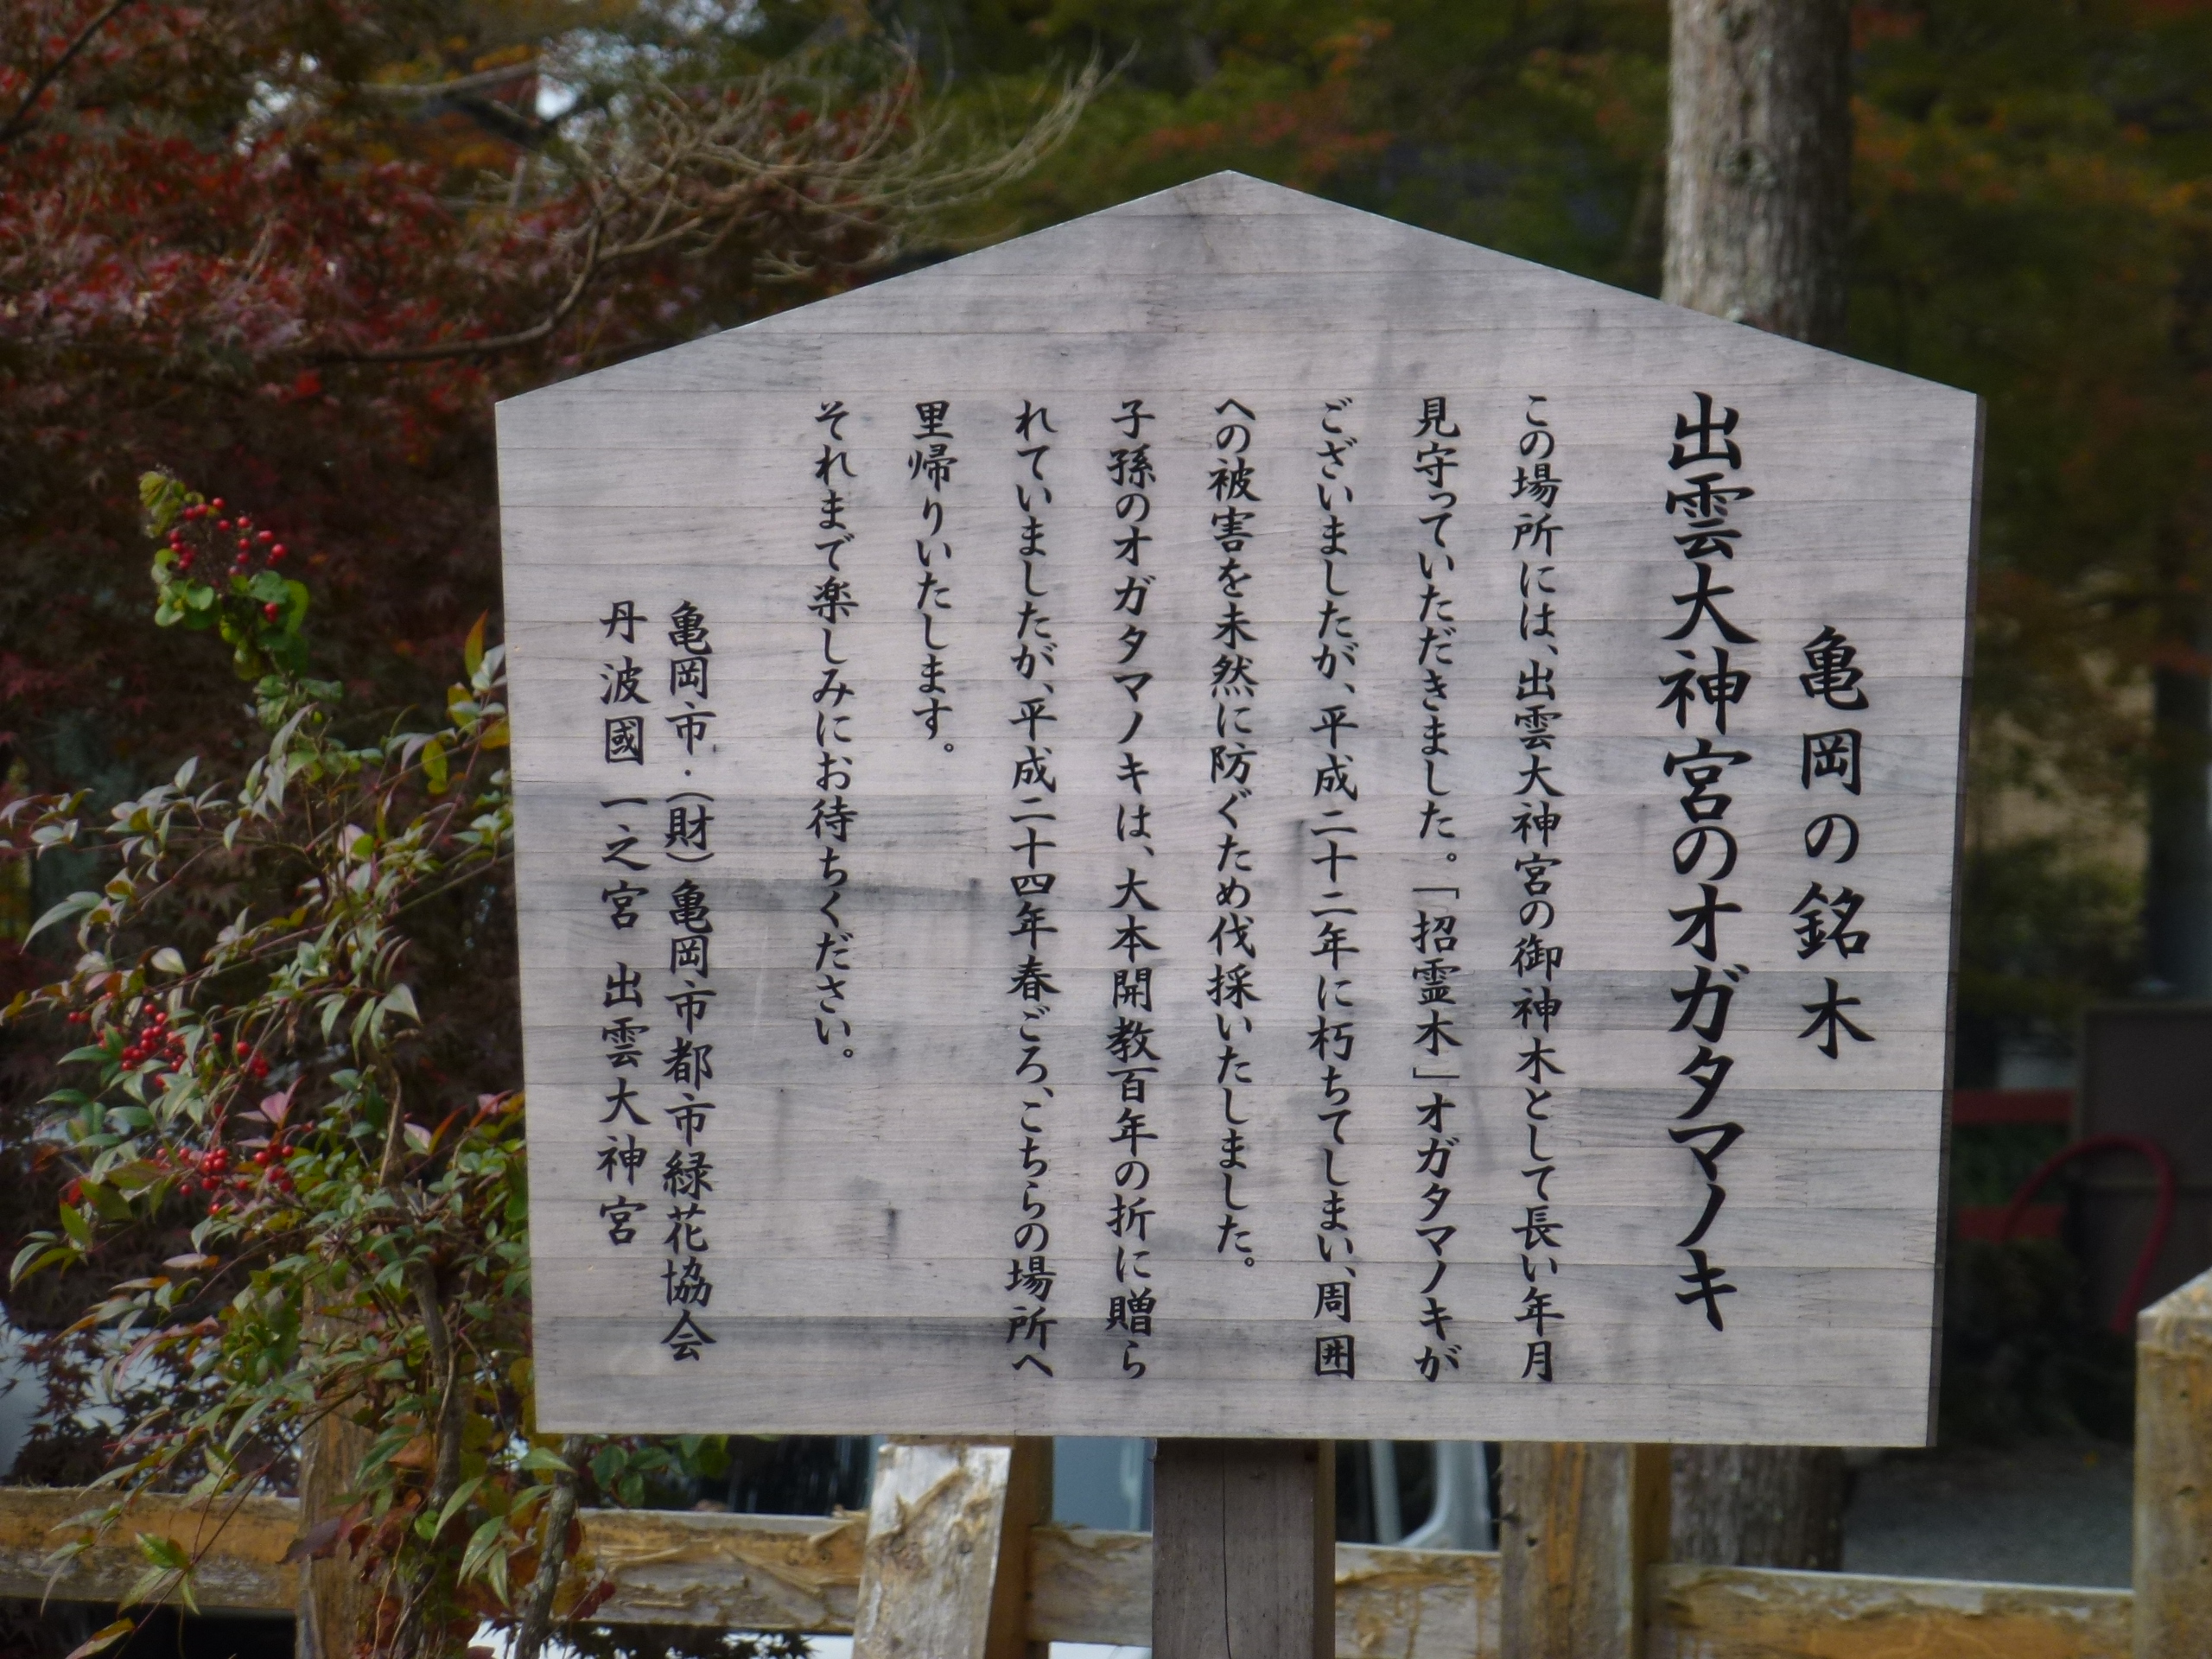 亀岡の銘木
出雲大神宮のオガタマノキ
この場所には、出雲大神宮の御神木として長い年月
見守っていただきました。「招霊木」オガタマノキが
ございましたが、平成二十二年に朽ちてしまい、周囲
への被害を未然に防ぐため伐採いたしました。
子孫のオガタマノキは、大本開教百年の折に贈ら
れていましたが、平成二十四年春ごろ、こちらの場所へ
里帰りいたします。
それまで楽しみにお待ちください。
亀岡市・(財)亀岡市都市緑花協会
丹波國一之宮 出雲大神宮